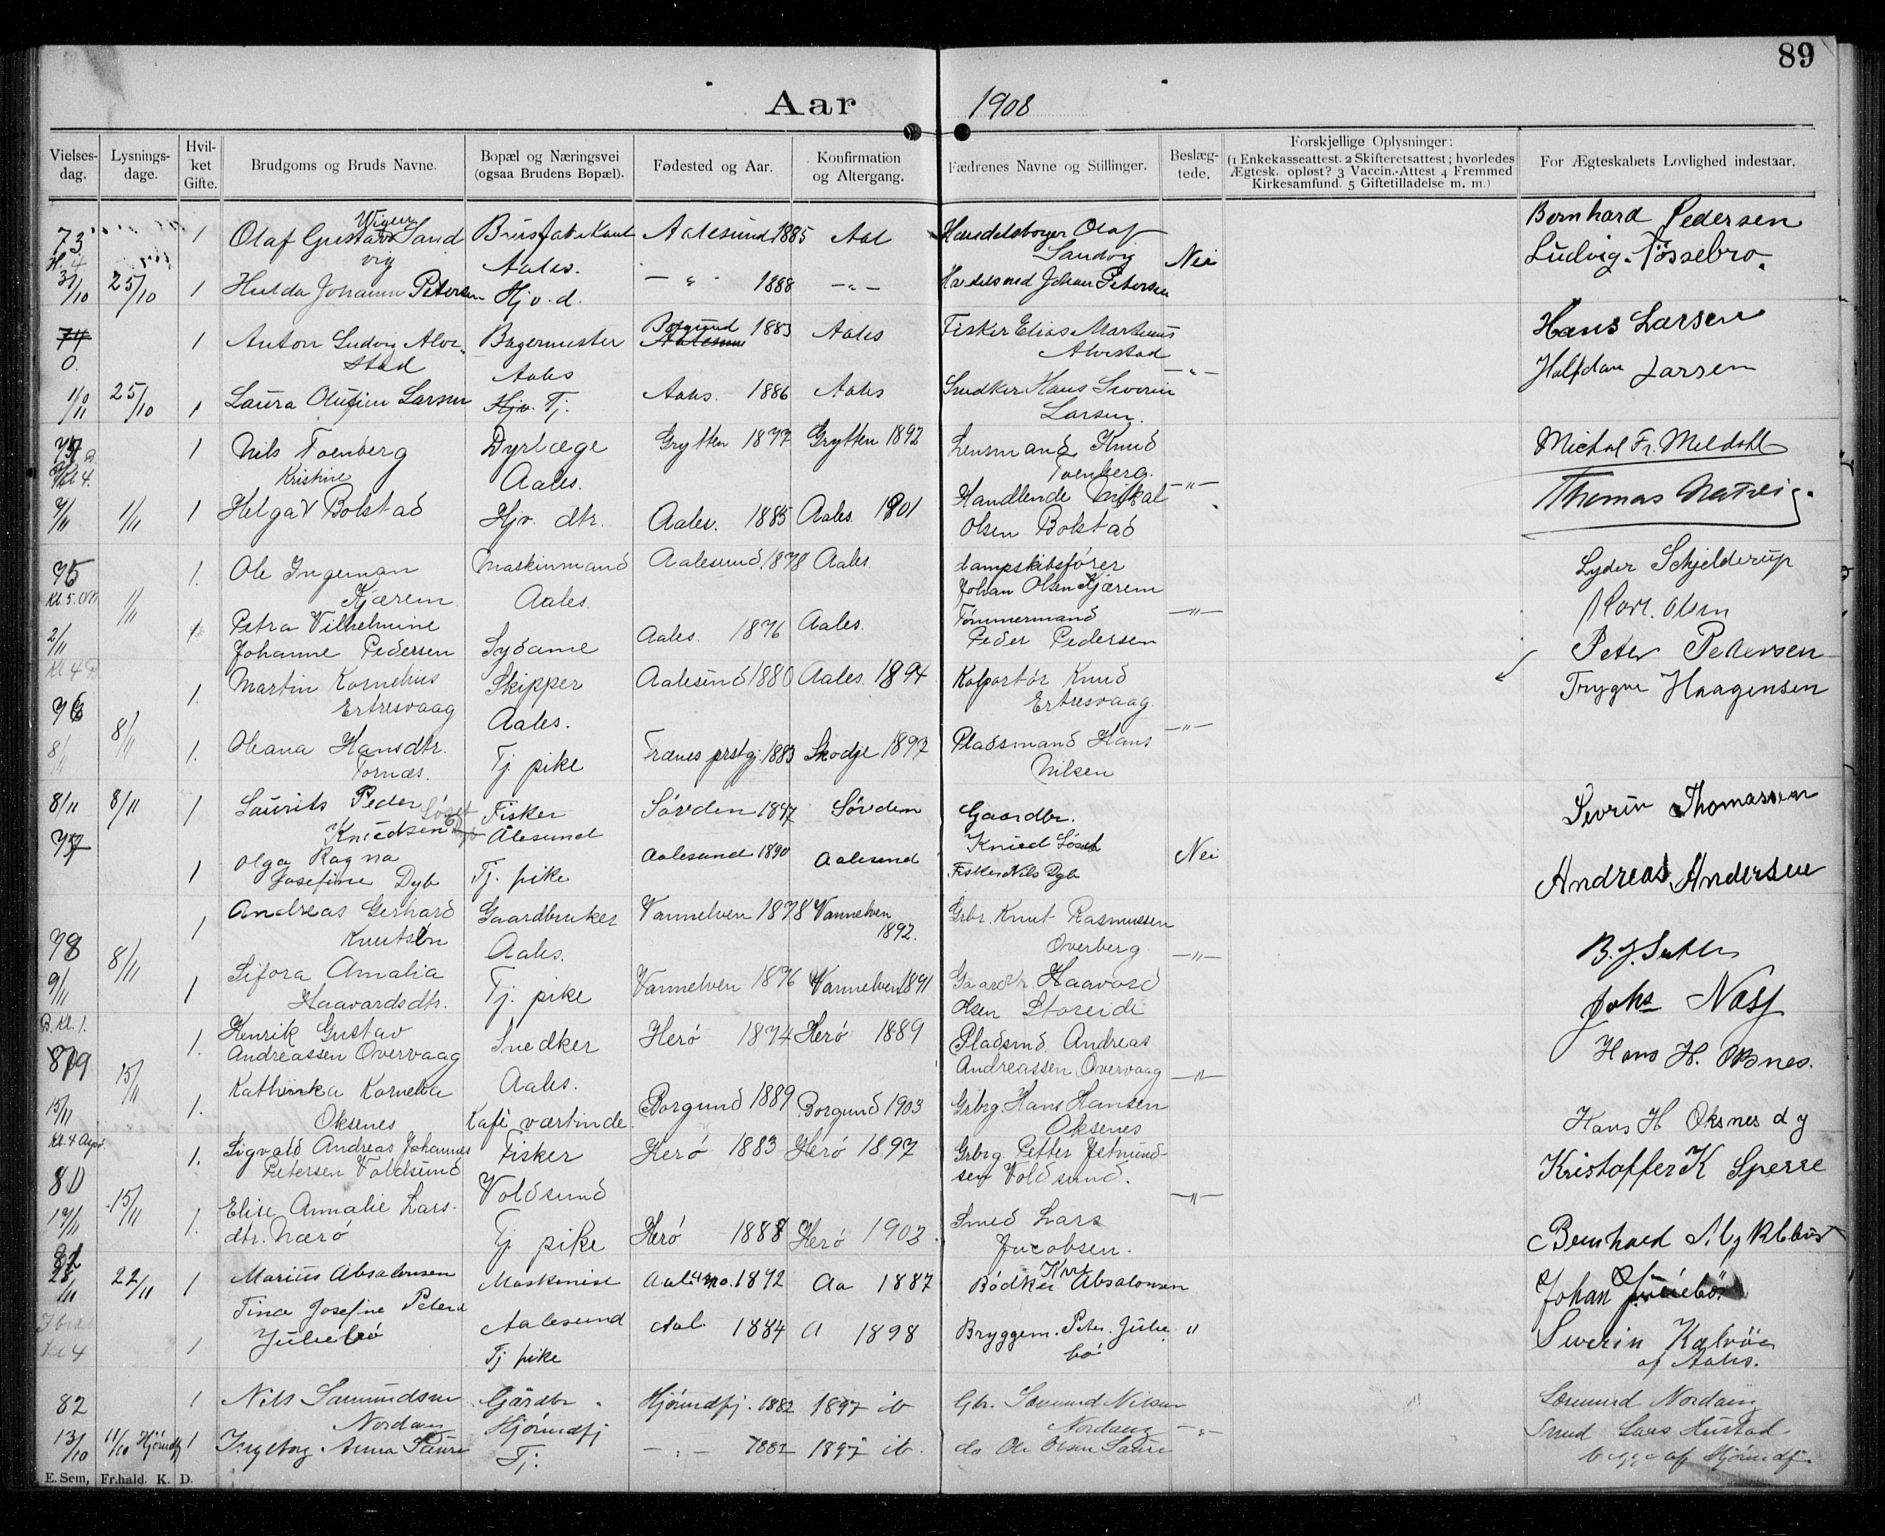 89
Aar 1908
Vielses-dag. Lysnings-dage. Hvil-ket Gifte. Brudgoms og Bruds Navne. Bopæl og Næringsvei (ogsaa Brudens Bopæl). Fødested og Aar. Konfirmation og Altergang. Fædrenes Navne og Stillinger. Beslæg-tede. Forskjellige Oplysninger: (1 Enkekasseattest. 2 Skifteretsattest; hvorledes Ægtesk. opløst? 3 Vaccin.-Attest 4 Fremmed Kirkesamfund. 5 Giftetilladelse m. m.) For Ægteskabets Lovlighed indestaar.
73 1 Olaf Gustav Sand Aalesund 1885 Aal Handelsborger Olaf Bernhard Pedersen
vig Aales. Sandvig Nei Ludvig Tøssebro.
31/10 25/10 1 Hulda Johanne Petersen Hjv. d. — " — 1888 — " — Johan Petersen
74 1 Anton Ludvig Alve- Bagermester Borgund 1883 Aales Fisker Elias Martinus Hans Larsen
stad Aales Alvestad — " — Halfdan Larsen
1/11 25/10 1 Laura Olufine Larsen Tj. Aales. 1886 Aales Snedker Hans Severin
Larsen.
1 Nils Toenberg Dyrlæge Grytten 1877 Grytten 1892 Lensmand Knud
Kristine Aales. Toenberg. — " — Thomas
1/11 1 Helga Bolstad Hjv. dtr. Aales. 1885 Aales. 1901 Handlende Mikal
Olsen Bolstad
75 1. Ole Ingeman Maskinmand Aalesund 1878 Aales. Dampskibsfører Lyder Schjelderup
Kjærem Aales. Johan Olsen Kjærem
1/11 1 Petra Vilhelmine Aales. 1876 Aales. Tømmermand — " — Olsen
2/11 Johanne Pedersen Sydame Peder Pedersen Peter Pedersen
1. Martin Kornelius Skipper Aalesund 1880 Aales. 1894 Kolportør Knud Trygve Haagensen
76 Ertresvaag Aales. Ertresvaag.
8/11 8/11 1. Oleana Hansdtr. Tj. pike prstgj. 1883 Skodje 1897 Pladsmand Hans — " —
Tornæs. Nilsen
8/11 8/11 1 Laurits Peder Fisker Søvden 1887 Søvden Gaardbr. Severin Thomassen
77 Knudsen Ålesund Knud
1 Olga Ragna Aalesund 1890 Aalesund Nei Andreas Andersen
Josefine Dyb Tj. pike Fisker Nils Dyb
1 Andreas Gerhard Gaardbruker Vannelven 1878 Vannelven 1892. Grbr. Knut Rasmussen
78 Knutsen Aales. Overberg — " —
9/11 8/11 1 Sifora Amalia Tj. pike Vannelven 1876 Vannelven 1891 Haavard Johs
Haavardsdtr. Olsen Storeide
B. Kl. 1. 1. Henrik Gustav Snedker Herø 1874 Herø 1889 Pladsmd. Andreas Hans H. Oksnes.
79 Andreassen Overvaag Aales. Andreassen Overvaag — " —
15/11 15/11 1. Kathinka Kornelia Kafé værtinde. Borgund 1889 Borgund 1903 Grbrg. Hans Hansen Hans H Oksnes
Oksenes Oksenes
1. Sigvald Andreas Johannes Fisker Herø 1883 Herø 1897 Grbrg. Petter Kristoffer K Sperre
80 Petersen Voldsund Voldsund Voldsund. — " —
15/11 1. Elise Annalie Lars- Tj. pike Herø 1888 Herø 1903 Smed Lars Bernhard
dtr. Nærø Jacobsen.
81 22/11 1 Marius Absalonsen Maskinist 1872 Aa 1887 Bødker Knut Absalonsen Johan
1 Tina Josefine Aalesund Aal. 1884 A 1898 Bryggem. Peter Julie- " Severin
Juliebø Tj pike bø af Aales.
82 1 Nils Sæmundsen Gårdbr. Hjørundfj. 1882 1897 ib Gbr. Sæmund Nilsen Sæmund Nordang
Nordang Hjørundfj Nordang — " —
13/10 11/10 Hjørundfj 1 Ingeborg Anna Saure Tj. — " — 1882 1897 ib. do Ole Olsen Saure Lars Hustad
begge af Hjørundfj.
E. Sem, Fr.hald. K. D.